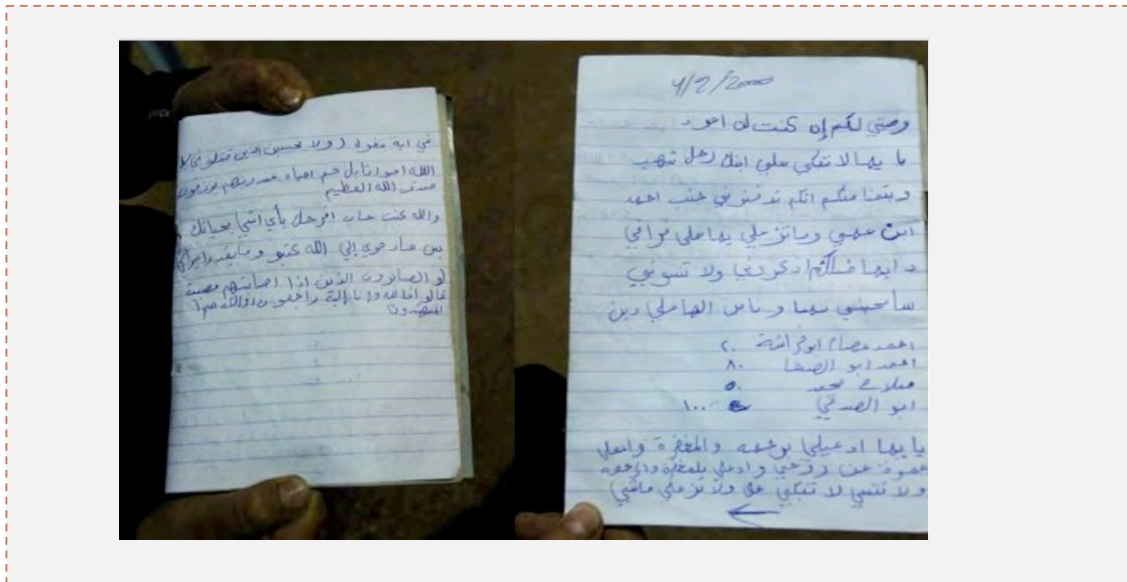 4/2/2000
وصتي لكم إن كنت لن اعود
يا يما لا تبكي علي ابنك رحل شهيد
وبتمنا منكم انكم تدفنوني جنب احمد
ابن عمي وما تزعلي يما على فراقي
دايما اذكروني ولا تنسوني
سامحيني يما و ناس الها علي دين
احمد عصام ابو ٢٠
احمد ابو الصفا ٨٠
صلاح محمد ٥٠
ابو الصدقي ١٠٠
يا يما ادعيلي والمغفرة واعملي
عمرة عن روحي وادعي بلمغفرة والرحمه
ولا تنسي لا تبكي علي ولا تزعلي ماشي
في اية تقول ولا تحسبن الذين قتلو في
الله امواتا بل هم احياء عند ربهم يرزقون
صدق الله العظيم
والله كنت حاب افرحك بأي اشي بحياتك
بس الله
الصابرون الذين اذا اصابتهم مصيبة
قالو انا لله وانا إلية راجعون